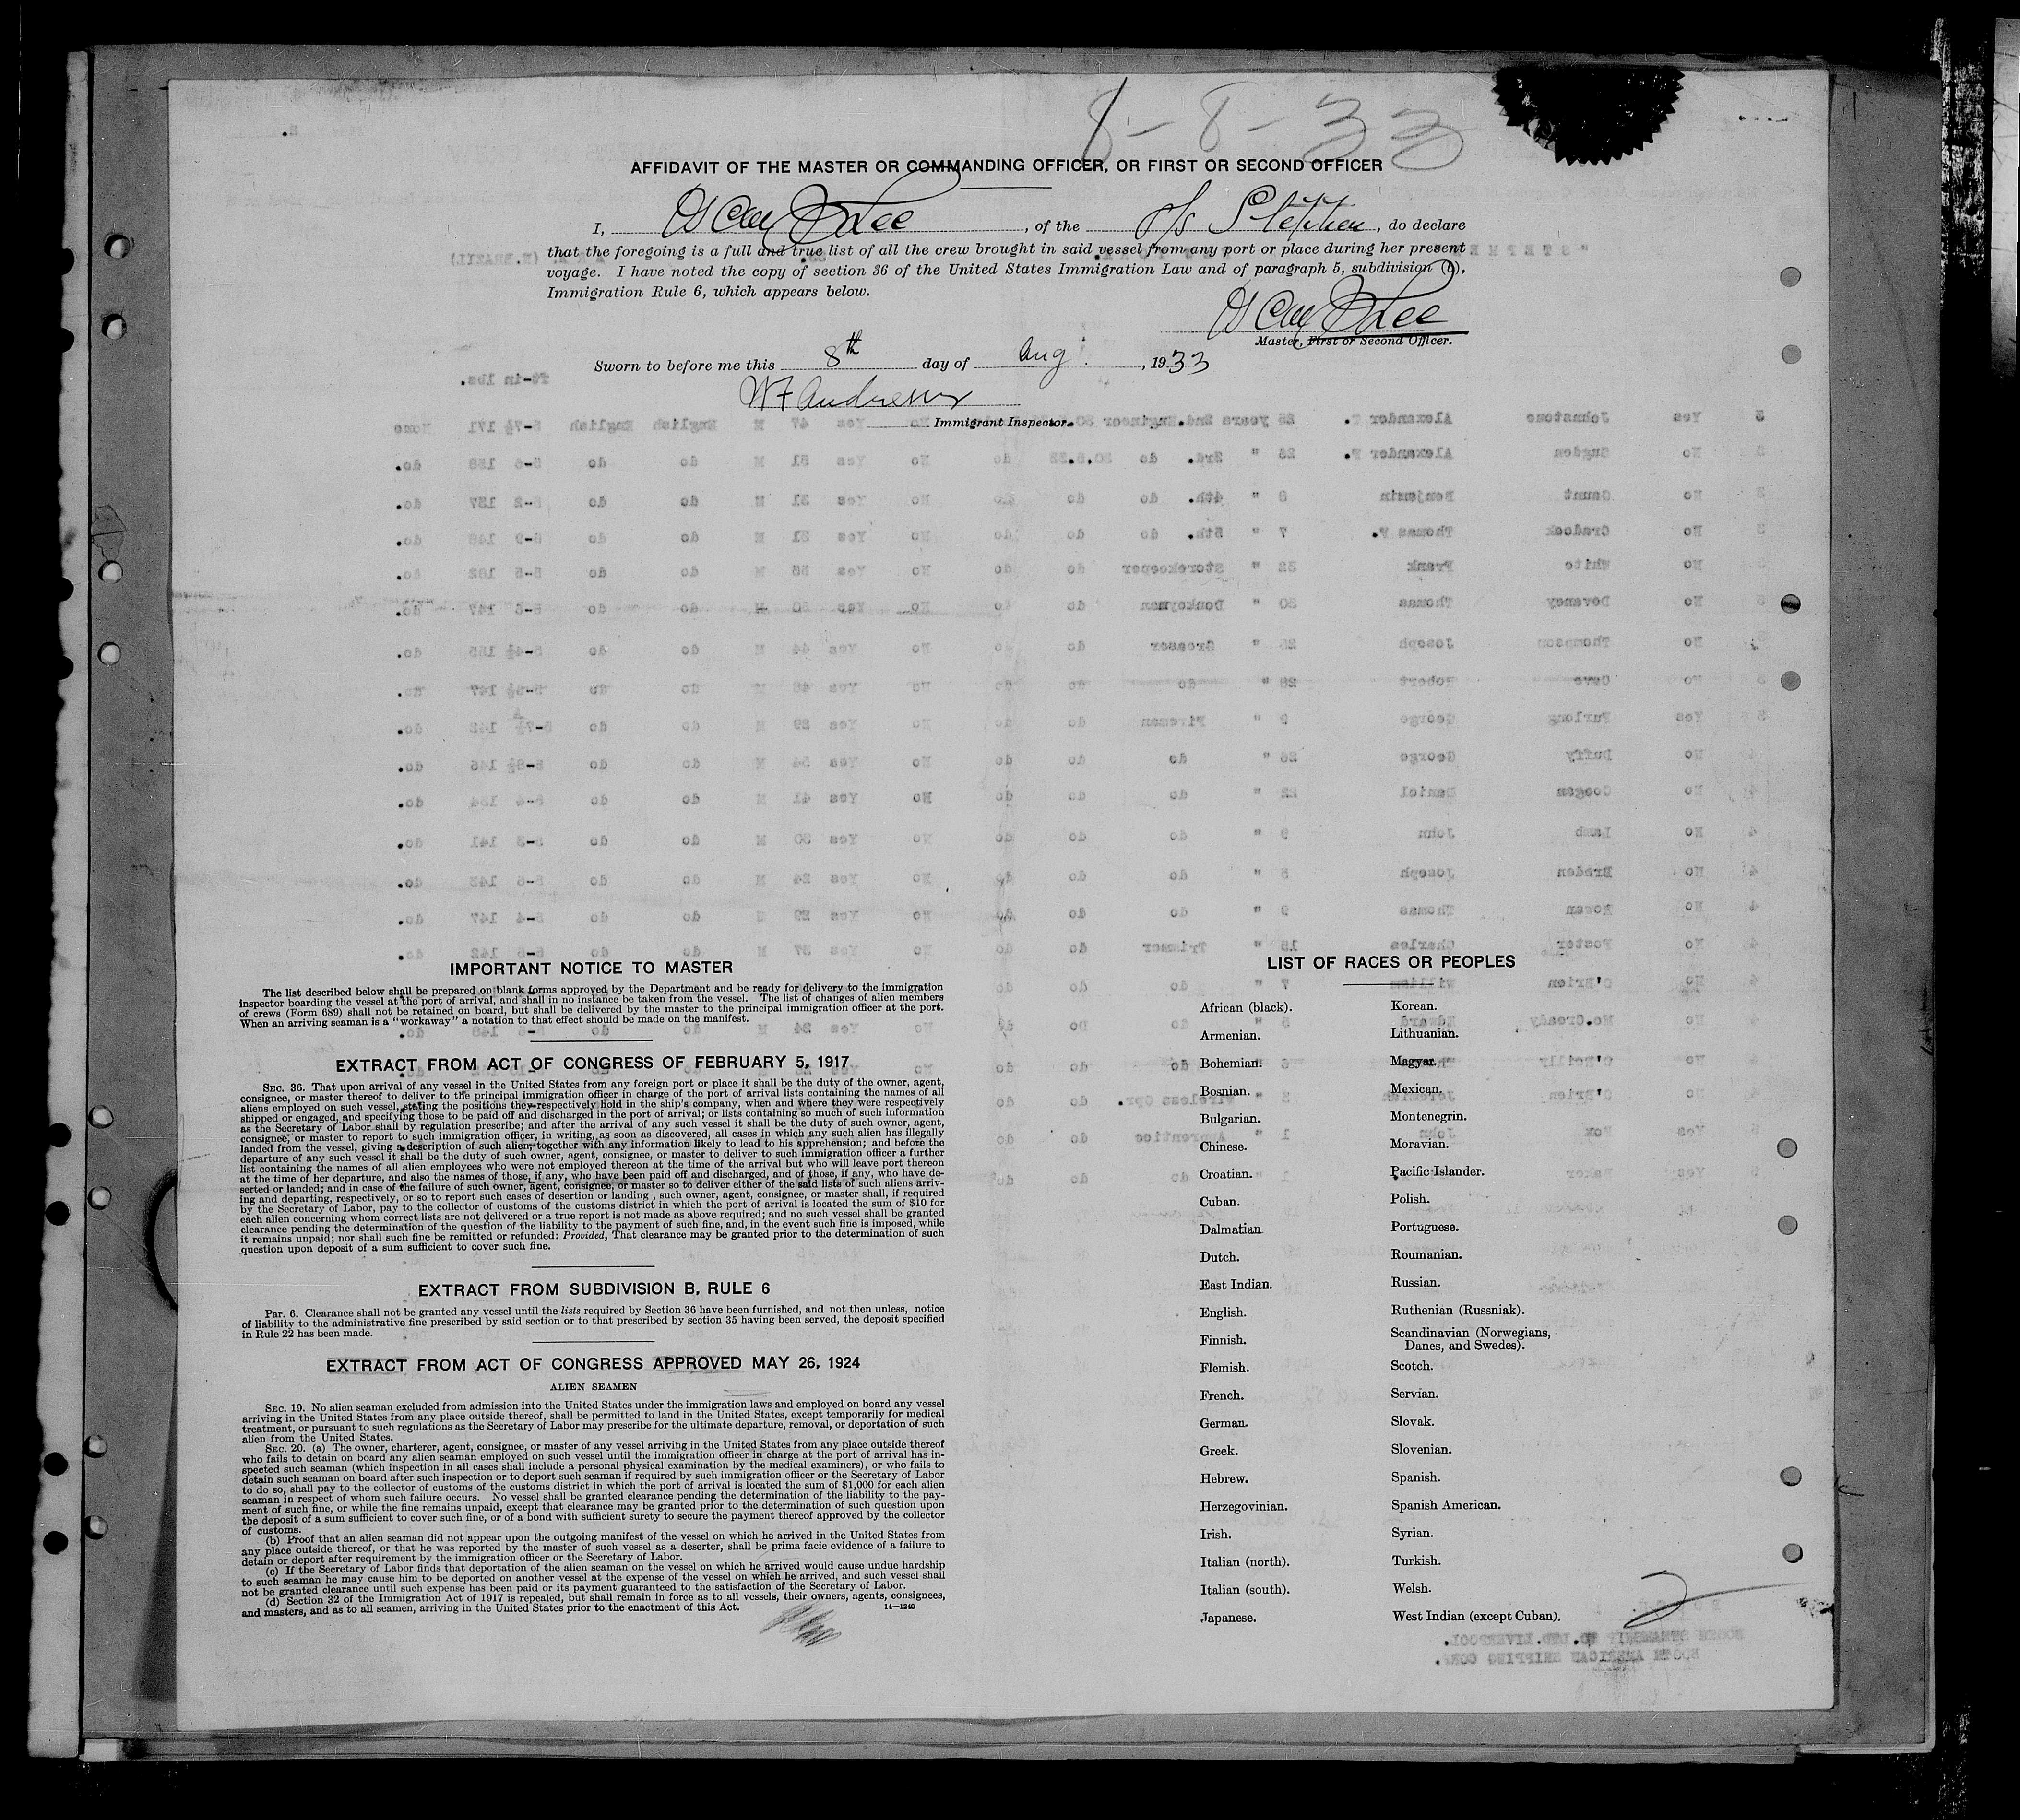 8-8-33
AFFIDAVIT OF THE MASTER OR COMMANDING OFFICER, OR FIRST OR SECOND OFFICER
I, Lee, of the s/s Stephen, do declare
that the foregoing is a full and true list of all the crew brought in said vessel from any port or place during her present
voyage. I have noted the copy of section 36 of the United States Immigration Law and of paragraph 5, subdivision
Immigration Rule 6, which appears below.
Lee
Master, First or Second Officer.
Sworn to before me this 8th day of Aug., 1933
W F Andrews
Immigrant Inspector.
IMPORTANT NOTICE TO MASTER
The list described below shall be prepared on blank forms approved by the Department and be ready for delivery to the immigration
inspector boarding the vessel at the port of arrival, and shall in no instance be taken from the vessel. The list of changes of alien members
of crews (Form 689) shall not be retained on board, but shall be delivered by the master to the principal immigration officer at the port.
When an arriving seaman is a "workaway" a notation to that effect should be made on the manifest.
EXTRACT FROM ACT OF CONGRESS OF FEBRUARY 5, 1917
SEC. 36. That upon arrival of any vessel in the United States from any foreign port or place it shall be the duty of the owner, agent,
consignee, or master thereof to deliver to the principal immigration officer in charge of the port of arrival lists containing the names of all
aliens employed on such vessel, stating the positions they respectively hold in the ship's company, when and where they were respectively
shipped or engaged, and specifying those to be paid off and discharged in the port of arrival; or lists containing so much of such information
as the Secretary of Labor shall by regulation prescribe; and after the arrival of any such vessel it shall be the duty of such owner, agent,
consignee, or master to report to such immigration officer, in writing, as soon as discovered, all cases in which any such alien has illegally
landed from the vessel, giving a description of such alien, together with any information likely to lead to his apprehension; and before the
departure of any such vessel it shall be the duty of such owner, agent, consignee, or master to deliver to such immigration officer a further
list containing the names of all alien employees who were not employed thereon at the time of the arrival but who will leave port thereon
at the time of her departure, and also the names of those, if any, who have been paid off and discharged, and of those, if any, who have de-
serted or landed; and in case of the failure of such owner, agent, consignee, or master so to deliver either of the said lists of such aliens arriv-
ing and departing, respectively, or so to report such cases of desertion or landing , such owner, agent, consignee, or master shall, if required
by the Secretary of Labor, pay to the collector of customs of the customs district in which the port of arrival is located the sum of $10 for
each alien concerning whom correct lists are not delivered or a true report is not made as above required; and no such vessel shall be granted
clearance pending the determination of the question of the liability to the payment of such fine, and, in the event such fine is imposed, while
it remains unpaid; nor shall such fine be remitted or refunded: Provided, That clearance may be granted prior to the determination of such
question upon deposit of a sum sufficient to cover such fine.
EXTRACT FROM SUBDIVISION B, RULE 6
Par. 6. Clearance shall not be granted any vessel until the lists required by Section 36 have been furnished, and not then unless, notice
of liability to the administrative fine prescribed by said section or to that prescribed by section 35 having been served, the deposit specified
in Rule 22 has been made.
EXTRACT FROM ACT OF CONGRESS APPROVED MAY 26, 1924
ALIEN SEAMEN
SEC. 19. No alien seaman excluded from admission into the United States under the immigration laws and employed on board any vessel
arriving in the United States from any place outside thereof, shall be permitted to land in the United States, except temporarily for medical
treatment, or pursuant to such regulations as the Secretary of Labor may prescribe for the ultimate departure, removal, or deportation of such
alien from the United States.
SEC. 20. (a) The owner, charterer, agent, consignee, or master of any vessel arriving in the United States from any place outside thereof
who fails to detain on board any alien seaman employed on such vessel until the immigration officer in charge at the port of arrival has in-
spected such seaman (which inspection in all cases shall include a personal physical examination by the medical examiners), or who fails to
detain such seaman on board after such inspection or to deport such seaman if required by such immigration officer or the Secretary of Labor
to do so, shall pay to the collector of customs of the customs district in which the port of arrival is located the sum of $1,000 for each alien
seaman in respect of whom such failure occurs. No vessel shall be granted clearance pending the determination of the liability to the pay-
ment of such fine, or while the fine remains unpaid, except that clearance may be granted prior to the determination of such question upon
the deposit of a sum sufficient to cover such fine, or of a bond with sufficient surety to secure the payment thereof approved by the collector
of customs.
(b) Proof that an alien seaman did not appear upon the outgoing manifest of the vessel on which he arrived in the United States from
any place outside thereof, or that he was reported by the master of such vessel as a deserter, shall be prima facie evidence of a failure to
detain or deport after requirement by the immigration officer or the Secretary of Labor.
(c) If the Secretary of Labor finds that deportation of the alien seaman on the vessel on which he arrived would cause undue hardship
to such seaman he may cause him to be deported on another vessel at the expense of the vessel on which he arrived, and such vessel shall
not be granted clearance until such expense has been paid or its payment guaranteed to the satisfaction of the Secretary of Labor.
(d) Section 32 of the Immigration Act of 1917 is repealed, but shall remain in force as to all vessels, their owners, agents, consignees,
and masters, and as to all seamen, arriving in the United States prior to the enactment of this Act.
14—1240
LIST OF RACES OR PEOPLES
African (black).
Armenian.
Bohemian.
Bosnian.
Bulgarian.
Chinese.
Croatian.
Cuban.
Dalmatian
Dutch.
East Indian.
English.
Finnish.
Flemish.
French.
German.
Greek.
Hebrew.
Herzegovinian.
Irish.
Italian (north).
Italian (south).
Japanese.
Korean.
Lithuanian.
Magyar.
Mexican.
Montenegrin.
Moravian.
Pacific Islander.
Polish.
Portuguese.
Roumanian.
Russian.
Ruthenian (Russniak).
Scandinavian (Norwegians,
Danes, and Swedes).
Scotch.
Servian.
Slovak.
Slovenian.
Spanish.
Spanish American.
Syrian.
Turkish.
Welsh.
West Indian (except Cuban).
2